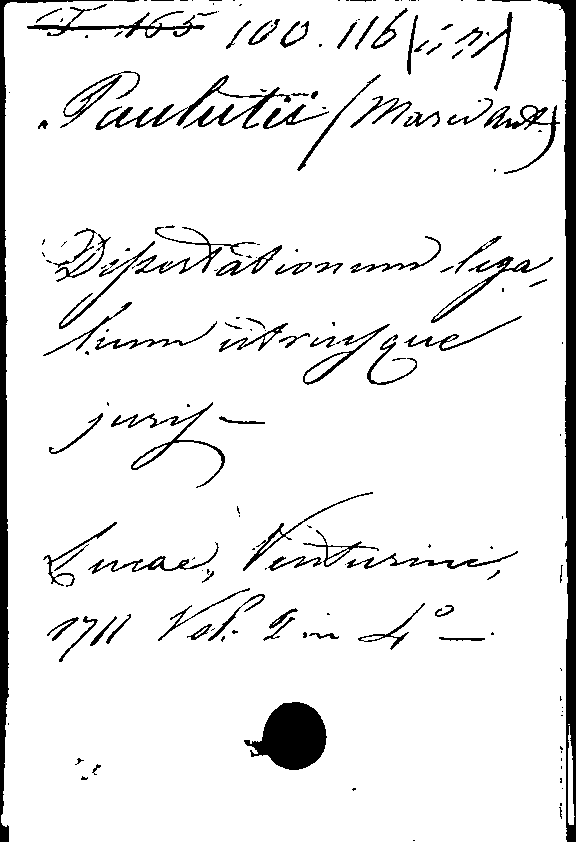 T. 165 100.116
Paulutii (Marci Ant.)
Dissertationum lega-
lium utriusque
juris —
Lucae, Venturini,
1711 Vol. I in 4° —